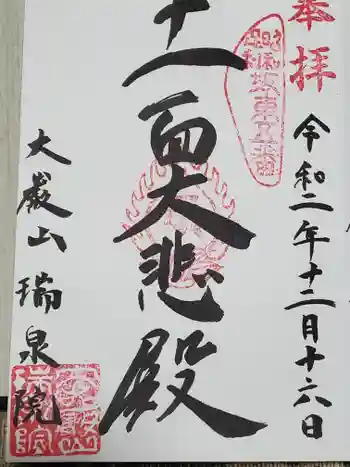 奉拝
令和二年十二月十六日
十一面大悲殿
大巌山瑞泉院